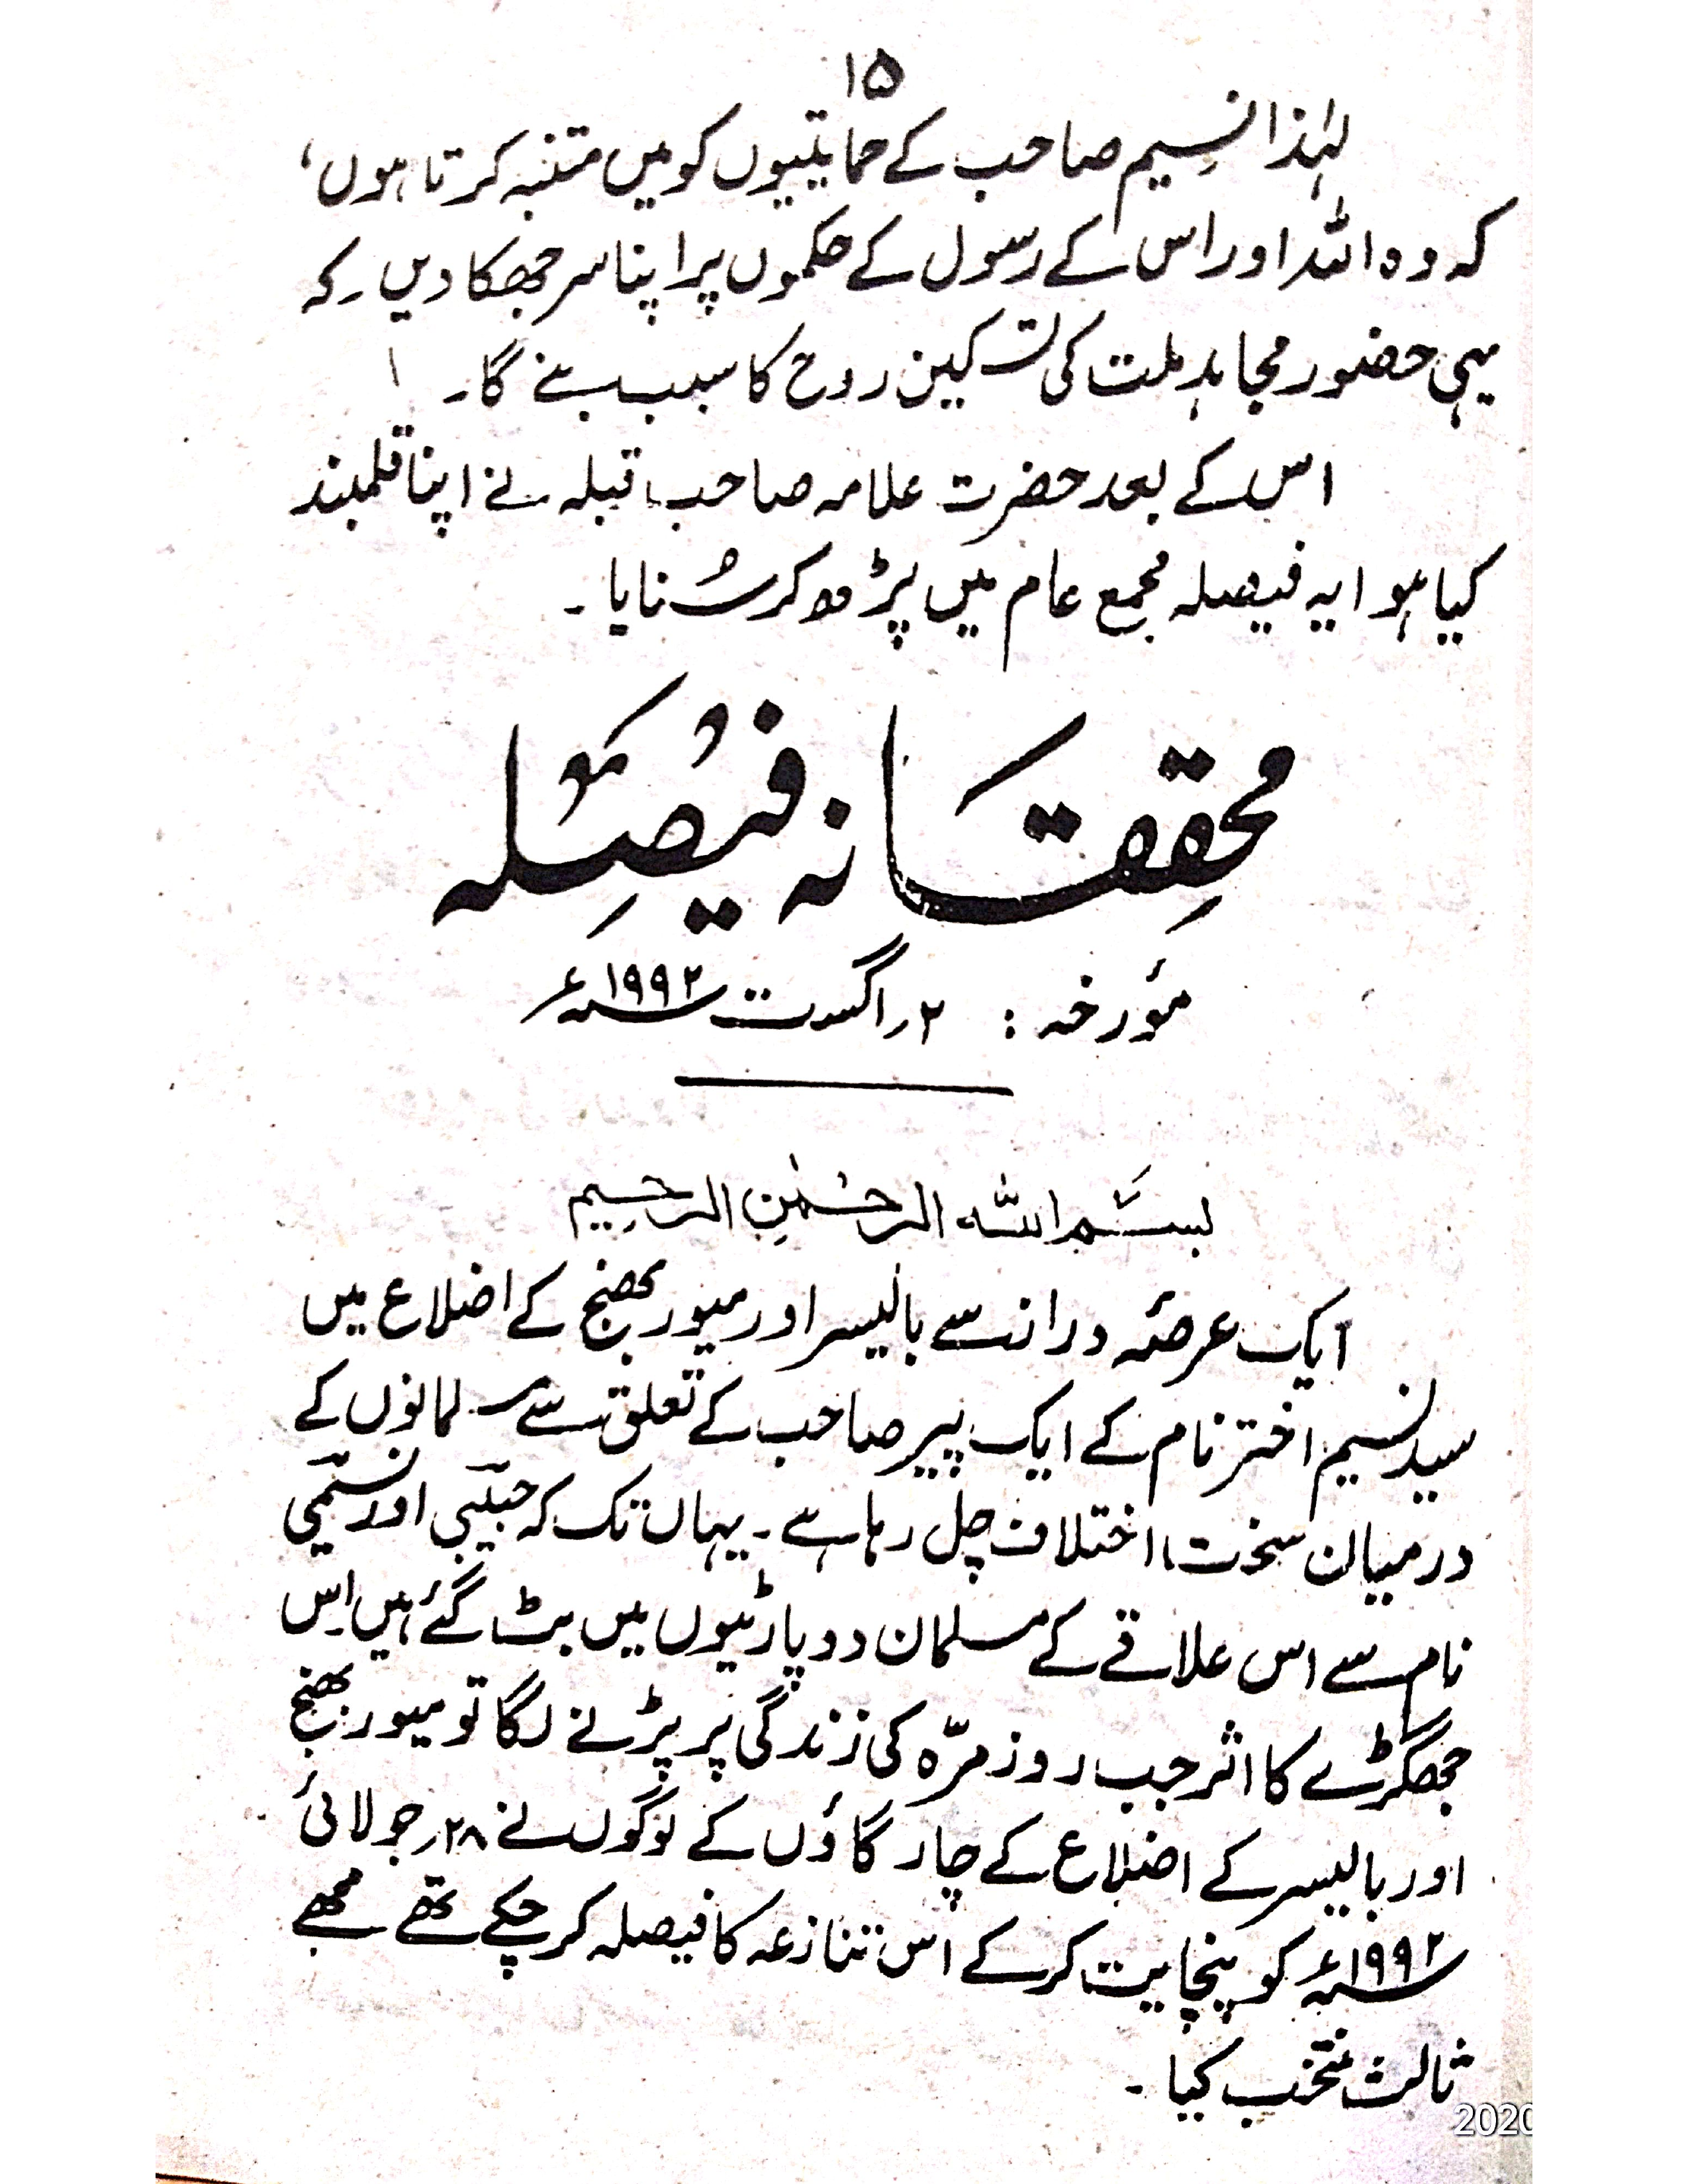 ۱۵
لہٰذا نسیم صاحب کے حمایتیوں کو میں متنبہ کرتا ہوں،
کہ وہ اللہ اور اس کے رسول کے حکموں پر اپنا سر جھکا دیں۔ کہ
یہی حضور مجاہد ملت کی تسکین روح کا سبب بنے گا۔
اس کے بعد حضرت علامہ صاحب قبلہ نے اپنا قلمبند
کیا ہوا یہ فیصلہ مجمع عام میں پڑھ کر سُنایا۔
محققانہ فیصلہ
مؤرخہ : ۲؍ اگست ۱۹۹۲ء
بسم اللہ الرحمٰنِ الرحیم
ایک عرصۂ دراز سے بالیسر اور میور بھنج کے اضلاع میں
سید نسیم اختر نام کے ایک پیر صاحب کے تعلق سے مسلمانوں کے
درمیان سخت اختلاف چل رہا ہے۔ یہاں تک کہ حبیبی اور نسیمی
نام سے اس علاقے کے مسلمان دو پارٹیوں میں بٹ گئے ہیں اِس
جھگڑے کا اثر جب روز مرّہ کی زندگی پر پڑنے لگا تو میور بھنج
اور بالیسر کے اضلاع کے چار گاؤں کے لوگوں نے ۲۸؍ جولائی
۱۹۹۲ء کو پنچایت کر کے اس تنازعہ کا فیصلہ کر چکے تھے مجھے
ثالث منتخب کیا۔
2020